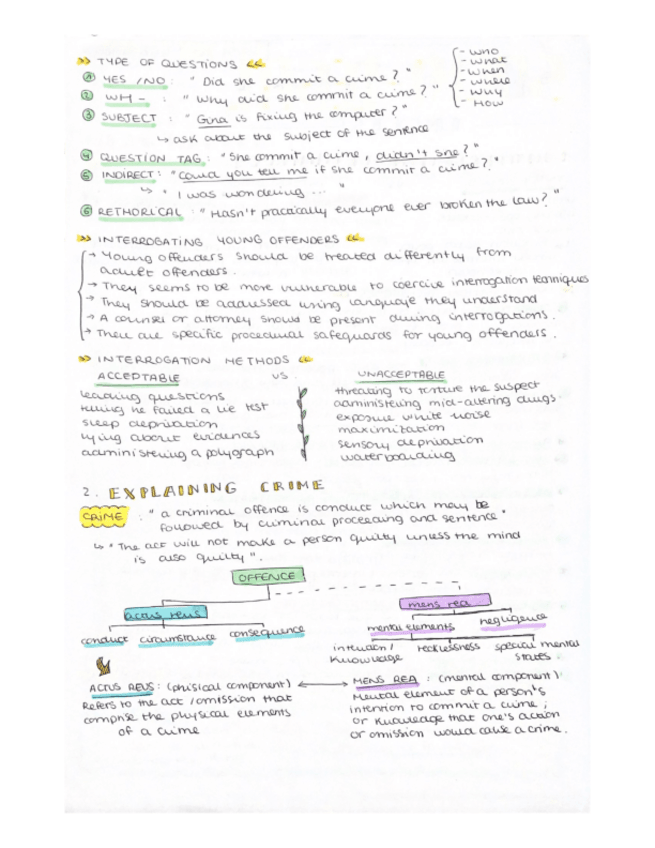 >> TYPE OF QUESTIONS <<
① YES /NO : " Did she commit a crime ? "
② WH - : " Why did she commit a crime ? "
- WHO
- WHAT
- WHEN
- WHERE
- WHY
- HOW
③ SUBJECT : " Gina is fixing the computer ? "
↳ ask about the subject of the sentence
④ QUESTION TAG : "She commit a crime, didn't she ? "
⑤ INDIRECT : "Could you tell me if she commit a crime ? ".
↳ " I was wondering ... "
⑥ RETHORICAL : " Hasn't practically everyone ever broken the law ? "
>> INTERROGATING YOUNG OFFENDERS <<
→ Young offenders should be treated differently from
adult offenders.
→ They seems to be more vulnerable to coercive interrogation techniques
→ They should be addressed using language they understand
→ A counsel or attorney should be present during interrogations.
→ There are specific procedural safeguards for young offenders.
>> INTERROGATION METHODS <<
ACCEPTABLE VS. UNACCEPTABLE
leading questions
telling he failed a lie test
sleep deprivation
lying about evidences
administering a polygraph
threating to torture the suspect
administering mid-altering drugs
exposure white noise
maximization
sensory deprivation
waterboarding
2. EXPLAINING CRIME
CRIME : " a criminal offence is conduct which may be
followed by criminal proceeding and sentence "
↳ " The act will not make a person guilty unless the mind
is also guilty ".
OFFENCE
actus reus
mens rea
conduct circumstance consequence
mental elements negligence
intention / knowledge
recklessness
special mental states
ACTUS REUS : (phisical component)
Refers to the act / omission that
comprise the physical elements
of a crime
MENS REA : (mental component)
Mental element of a person's
intention to commit a crime ;
or knowledge that one's action
or omission would cause a crime.